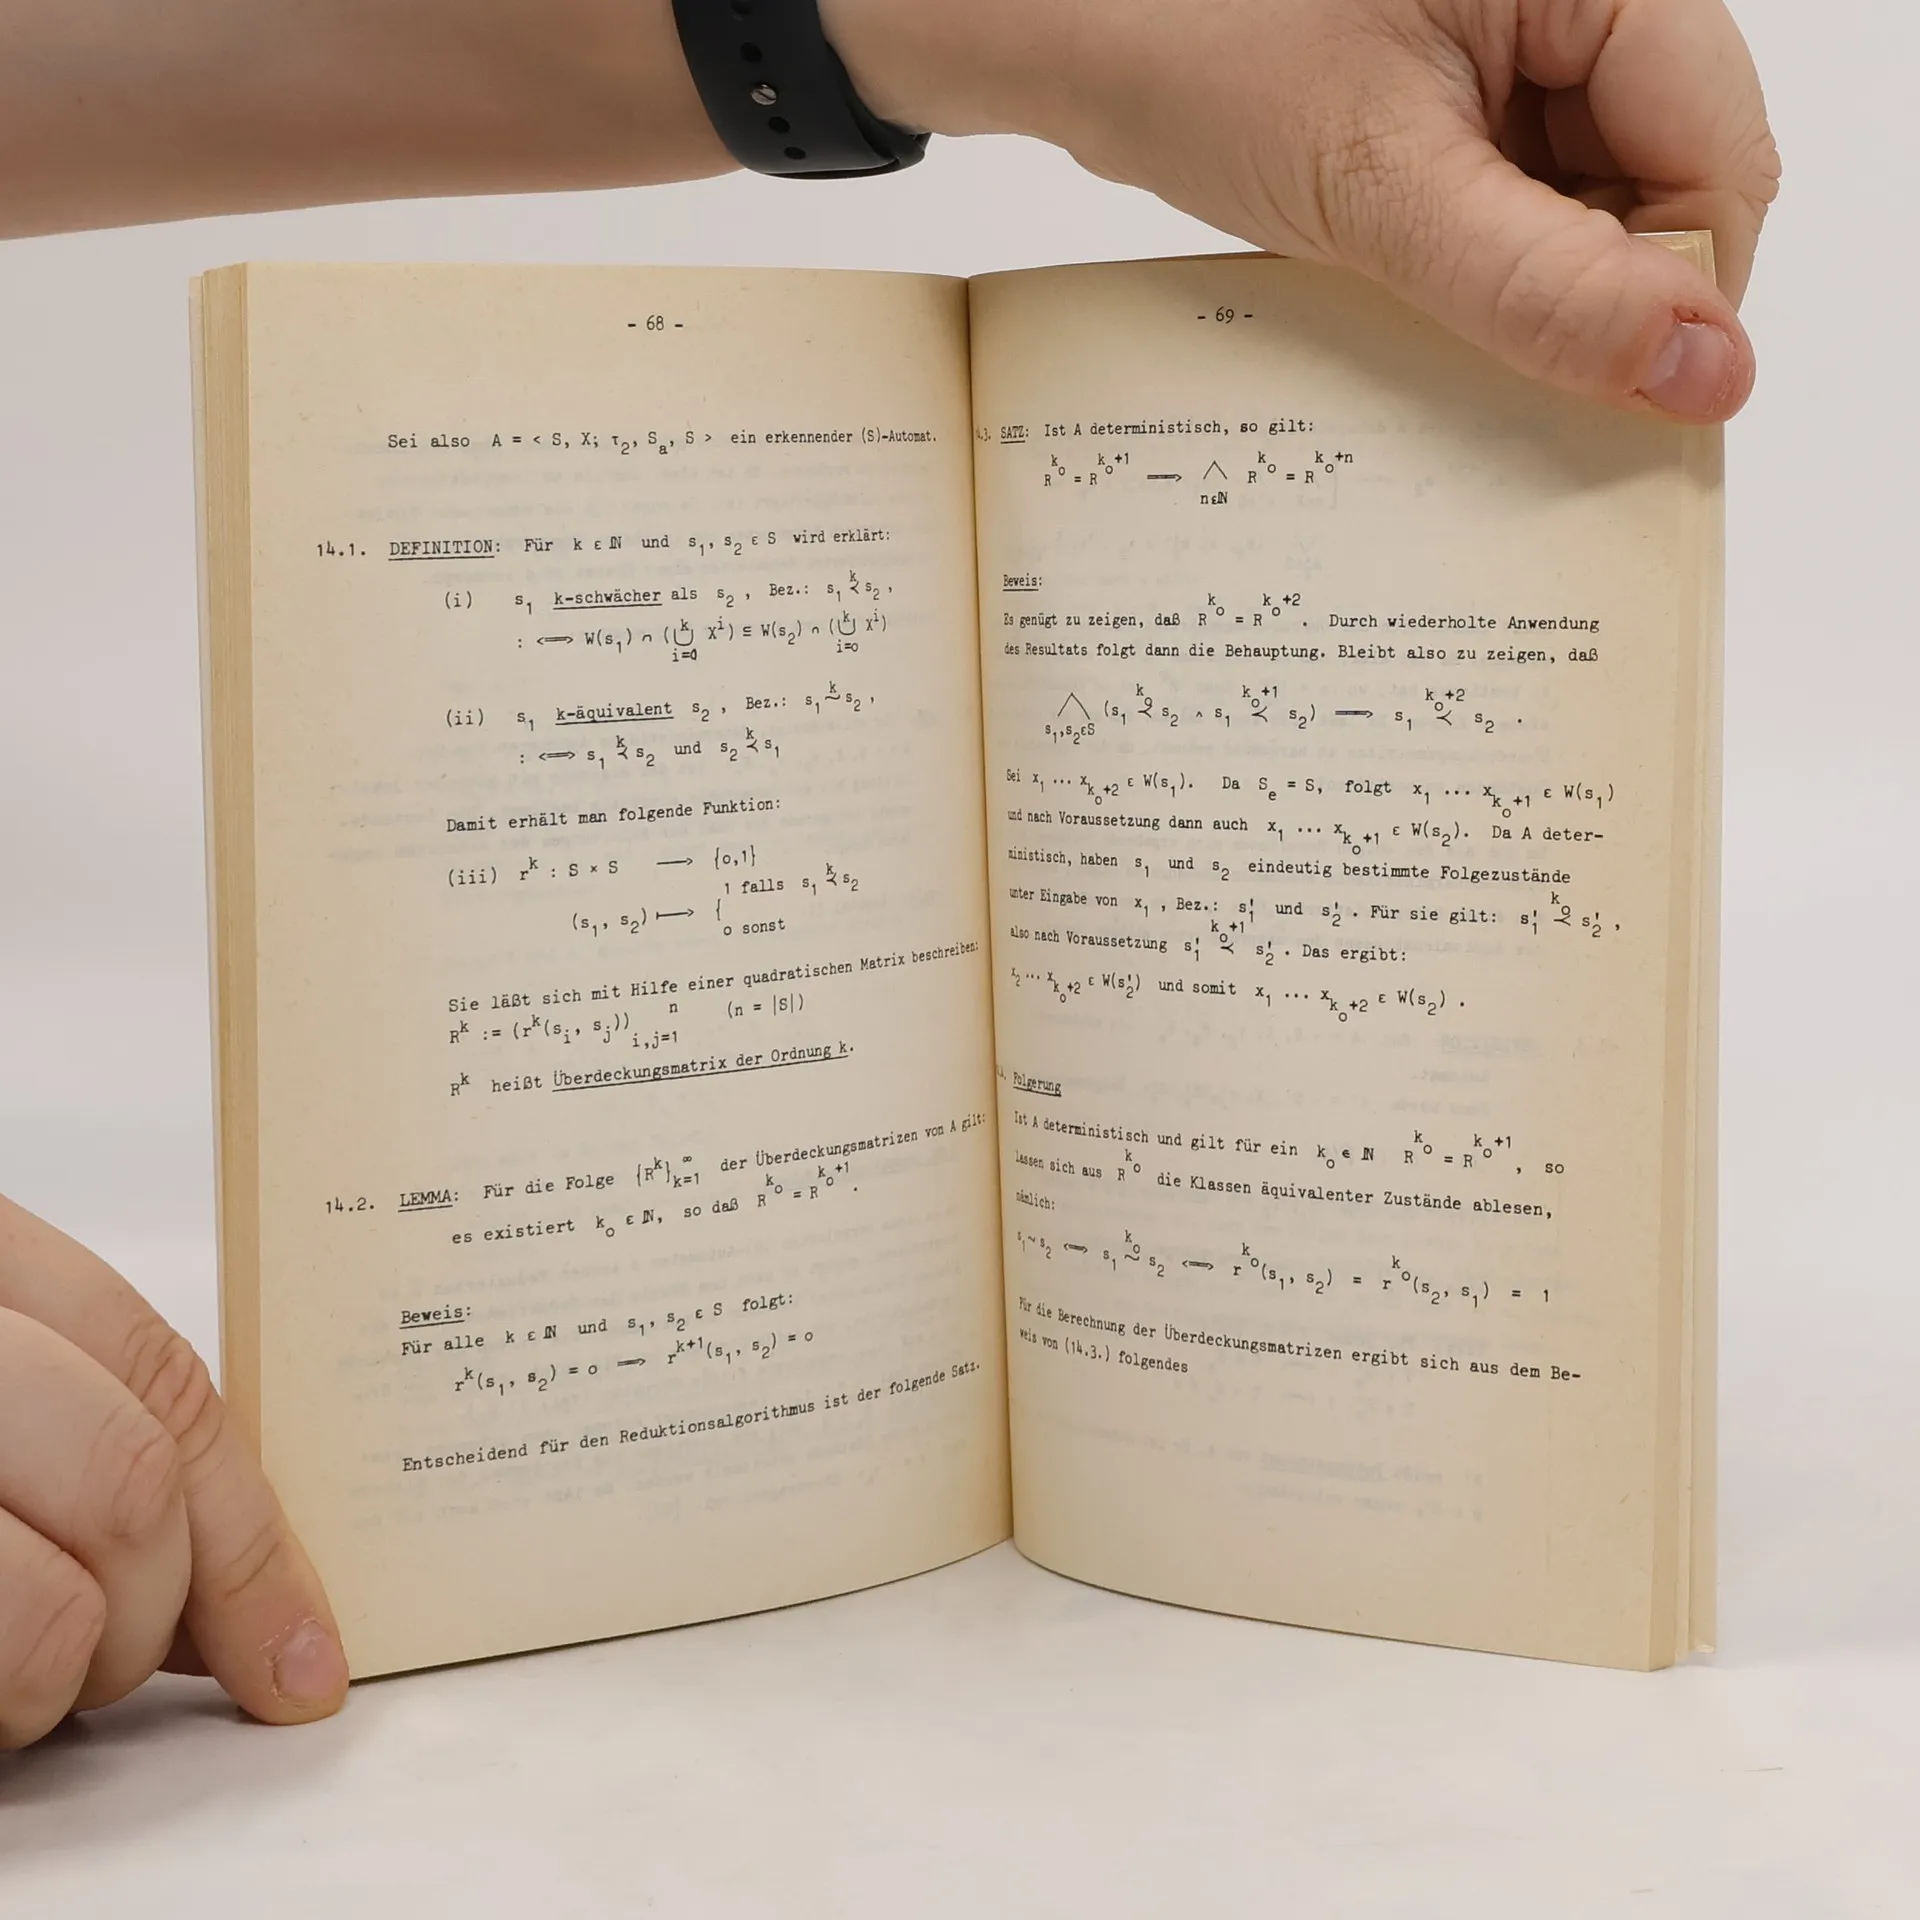 - 68 -
Sei also A = < S, X; τ₂, Sₐ, S > ein erkennender (S)-Automat.
14.1. DEFINITION: Für k ε ℕ und s₁, s₂ ε S wird erklärt:
(i) s₁ k-schwächer als s₂ , Bez.: s₁ ≺^k s₂ ,
: ⟺ W(s₁) ∩ (⋃_{i=0}^k X^i) ⊆ W(s₂) ∩ (⋃_{i=o}^k X^i)
(ii) s₁ k-äquivalent s₂ , Bez.: s₁ ~^k s₂ ,
: ⟺ s₁ ≺^k s₂ und s₂ ≺^k s₁
Damit erhält man folgende Funktion:
(iii) r^k : S × S ⟶ {o,1}
(s₁, s₂) ⟼ { 1 falls s₁ ≺^k s₂
o sonst
Sie läßt sich mit Hilfe einer quadratischen Matrix beschreiben:
R^k := (r^k(s_i, s_j))_{i,j=1}^n (n = |S|)
R^k heißt Überdeckungsmatrix der Ordnung k.
14.2. LEMMA: Für die Folge {R^k}_{k=1}^∞ der Überdeckungsmatrizen von A gilt:
es existiert k_o ε ℕ, so daß R^{k_o} = R^{k_o+1}.
Beweis:
Für alle k ε ℕ und s₁, s₂ ε S folgt:
r^k(s₁, s₂) = o ⟹ r^{k+1}(s₁, s₂) = o
Entscheidend für den Reduktionsalgorithmus ist der folgende Satz.
- 69 -
.3. SATZ: Ist A deterministisch, so gilt:
R^{k_o} = R^{k_o+1} ⟹ ⋀_{nεℕ} R^{k_o} = R^{k_o+n}
Beweis:
Es genügt zu zeigen, daß R^{k_o} = R^{k_o+2} . Durch wiederholte Anwendung
des Resultats folgt dann die Behauptung. Bleibt also zu zeigen, daß
⋀_{s₁,s₂εS} (s₁ ≺^{k_o} s₂ ∧ s₁ ≺^{k_o+1} s₂) ⟹ s₁ ≺^{k_o+2} s₂ .
Sei x₁ ... x_{k_o+2} ε W(s₁). Da S_e = S, folgt x₁ ... x_{k_o+1} ε W(s₁)
und nach Voraussetzung dann auch x₁ ... x_{k_o+1} ε W(s₂). Da A deter-
ministisch, haben s₁ und s₂ eindeutig bestimmte Folgezustände
unter Eingabe von x₁ , Bez.: s₁' und s₂' . Für sie gilt: s₁' ≺^{k_o} s₂' ,
also nach Voraussetzung s₁' ≺^{k_o+1} s₂' . Das ergibt:
x₂ ... x_{k_o+2} ε W(s₂') und somit x₁ ... x_{k_o+2} ε W(s₂) .
Folgerung
Ist A deterministisch und gilt für ein k_o ε ℕ R^{k_o} = R^{k_o+1} , so
lassen sich aus R^{k_o} die Klassen äquivalenter Zustände ablesen,
nämlich:
s₁ ~ s₂ ⟺ s₁ ~^{k_o} s₂ ⟺ r^{k_o}(s₁, s₂) = r^{k_o}(s₂, s₁) = 1
Für die Berechnung der Überdeckungsmatrizen ergibt sich aus dem Be-
weis von (14.3.) folgendes